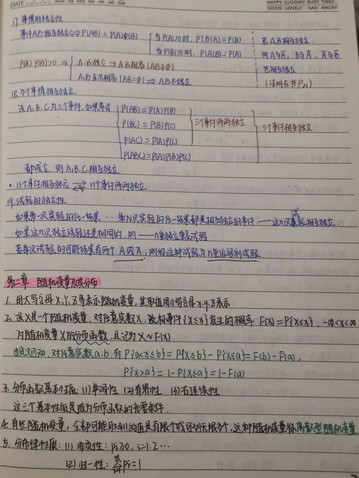 DATE
HAPPY GLOOMY BUSY TIRED
GOOD LOVELY SAD ANGRY
17. 事件的独立性
事件AB相互独立⇔P(AB)=P(A)P(B) { 当P(A)>0时, P(B|A)=P(B) { 若A,B相互独立
当P(B)>0时, P(A|B)=P(A) 则A与B̄, Ā与B, Ā与B̄
P(A) P(B)>0 ⇒ { A.B独立⇒A.B相容(AB≠∅) 也相互独立
A.B互不相容(AB=∅)⇒A.B不独立
18. 多个事件相互独立
设A.B.C是三个事件,如果等式 { P(AB)=P(A)P(B)
P(BC)=P(B)P(C) } 三个事件两两独立 } 三个事件相互独立
P(AC)=P(A)P(C)
P(ABC)=P(A)P(B)P(C)
都成立, 则A.B.C.相互独立
• n个事件相互独立 n个事件两两独立
19. 试验的独立性
第二章 随机变量及其分布
1. 用大写字母X,Y,Z等表示随机变量,其取值用小写字母x,y,z表示
2. 设X是一个随机变量,对任意实数x,称事件{X≤x}发生的概率 F(x)=P{X≤x}, -∞<x<∞
为随机变量X的分布函数,且记为X~F(x)
对任意实数a,b,有P{a<x≤b}=P{X≤b}-P{X≤a}=F(b)-F(a),
P{x>a}=1-P{X≤a}=1-F(a)
3. 分布函数基本性质: (1)单调性 (2)有界性 (3)右连续性
这三个基本性质成为分布函数的充要条件.
4. 有些随机变量,全部可能取到的值是有限个或可列无限多个,这种随机变量称离散型随机变量
5. 分布律性质: (1) 非负性: pᵢ≥0, i=1.2…
(2) 归一性: Σpᵢ=1